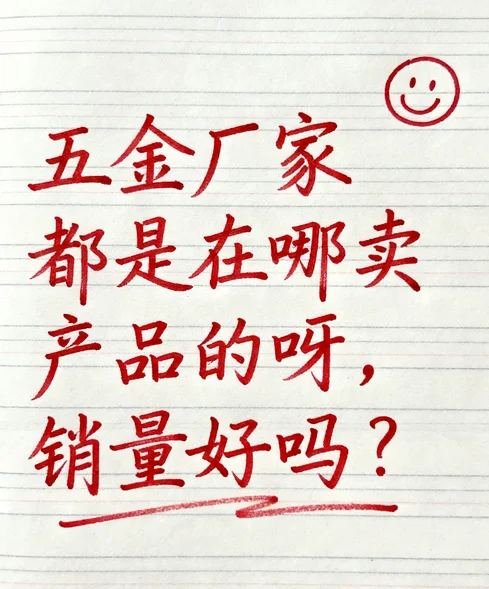 五金厂家
都是在哪卖
产品的呀，
销量好吗？